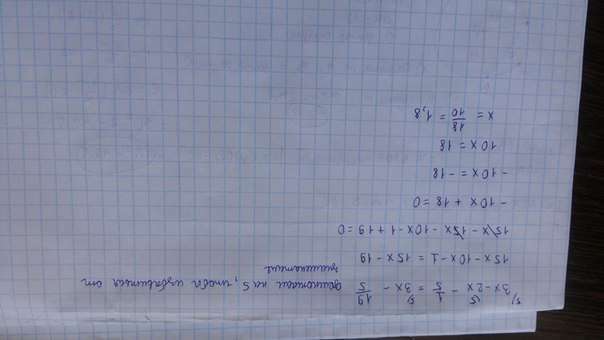 3x - 2x - 1/5 = 3x - 19/5 домножаем на 5, чтобы избавиться от
знаменателя
15x - 10x - 1 = 15x - 19
15x - 15x - 10x - 1 + 19 = 0
- 10x + 18 = 0
- 10x = - 18
10x = 18
x = 18/10 = 1,8